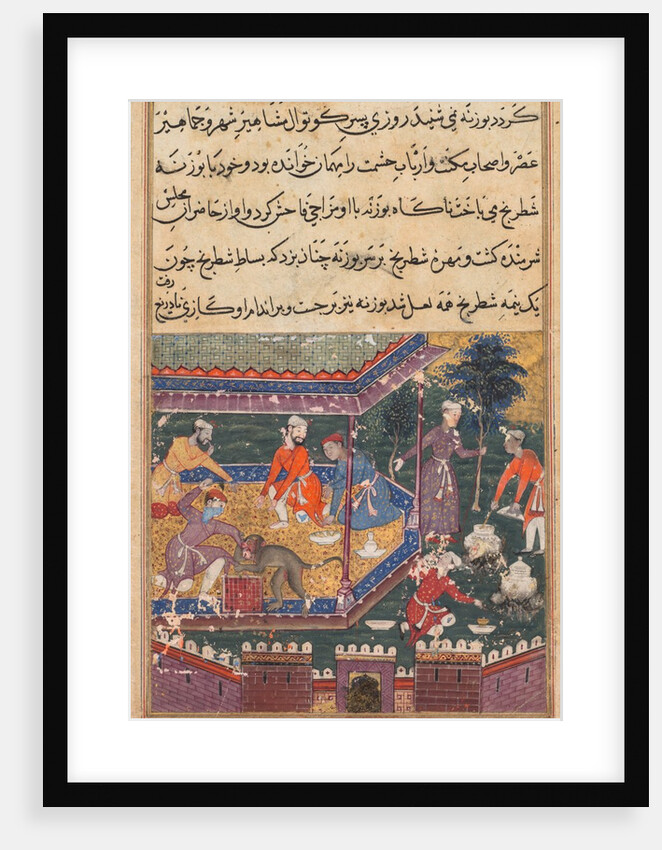 کردد بوزنه نمی شنید روزی پسر کوتوال مشاهیر شهر و جماهیر
عصر و اصحاب مکنت و ارباب حشمت را مهمان خوانده بود و خود با بوزنه
شطرنج می باخت ناکاه بوزنه با او مزاجی فاحش کرد و او از حاضران مجلس
شرمنده کشت و مهرهٔ شطرنج بر سر بوزنه چنان بزد که بساط شطرنج چون رفت
یک نیمه شطرنج همه لعل شد بوزنه نیز برجست و بر اندام او کازی